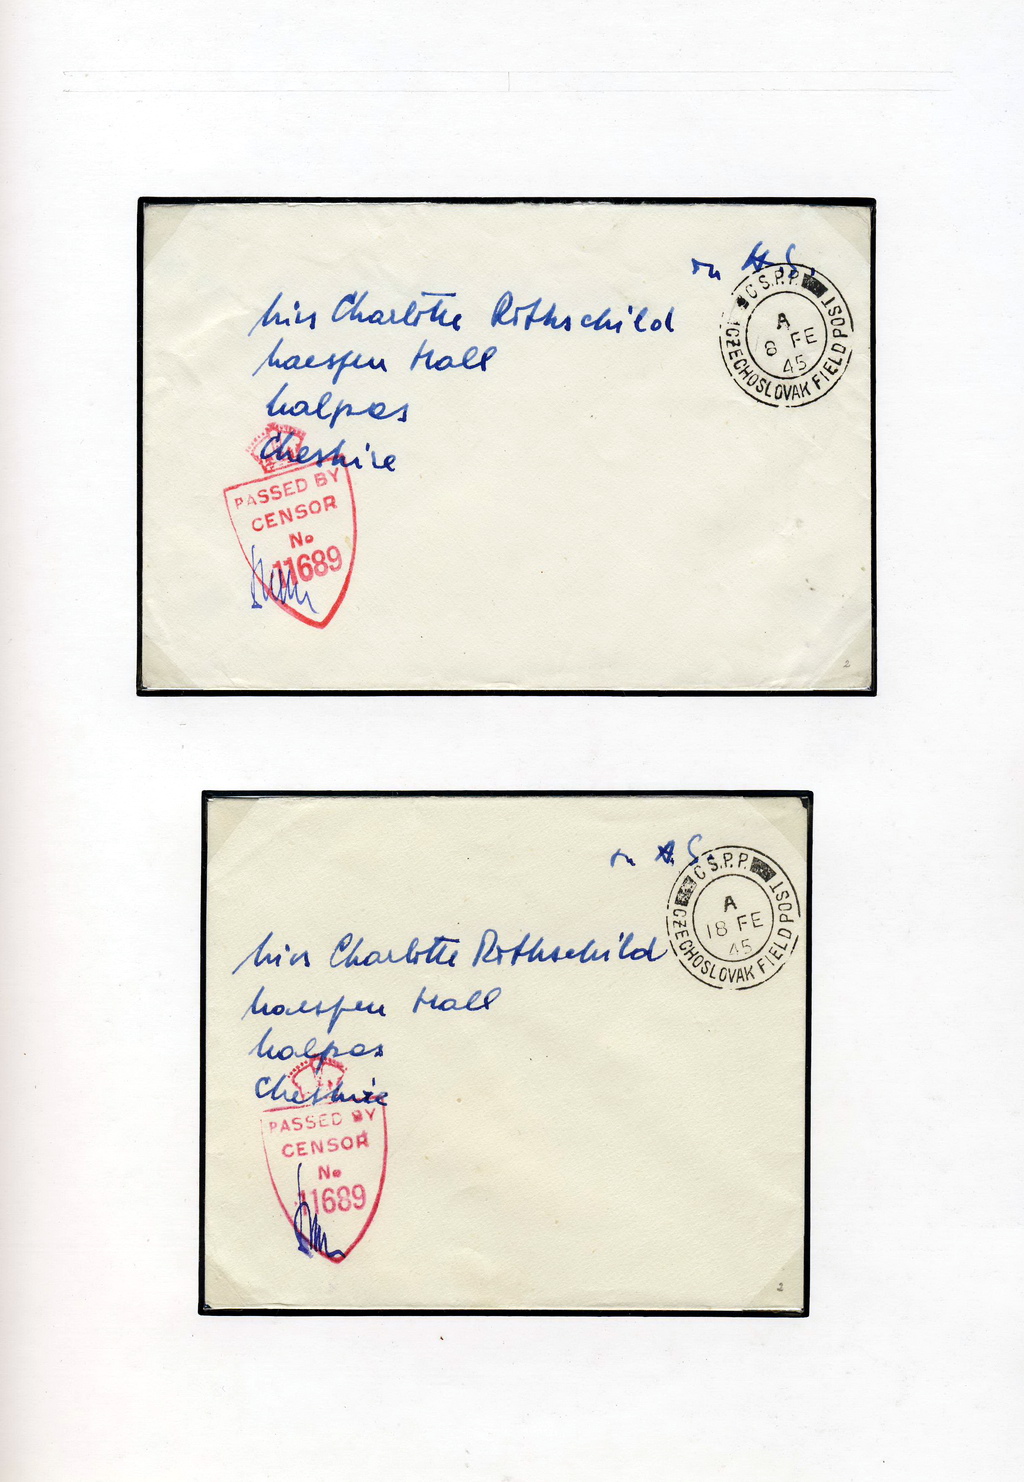 on A.S.
C.S.P.P.
A
8 FE
45
CZECHOSLOVAK FIELD POST
Miss Charlotte Rothschild
Macefen Hall
Malpas
Cheshire
PASSED BY
CENSOR
No
11689
2
on A.S.
C.S.P.P.
A
18 FE
45
CZECHOSLOVAK FIELD POST
Miss Charlotte Rothschild
Macefen Hall
Malpas
Cheshire
PASSED BY
CENSOR
No
11689
2